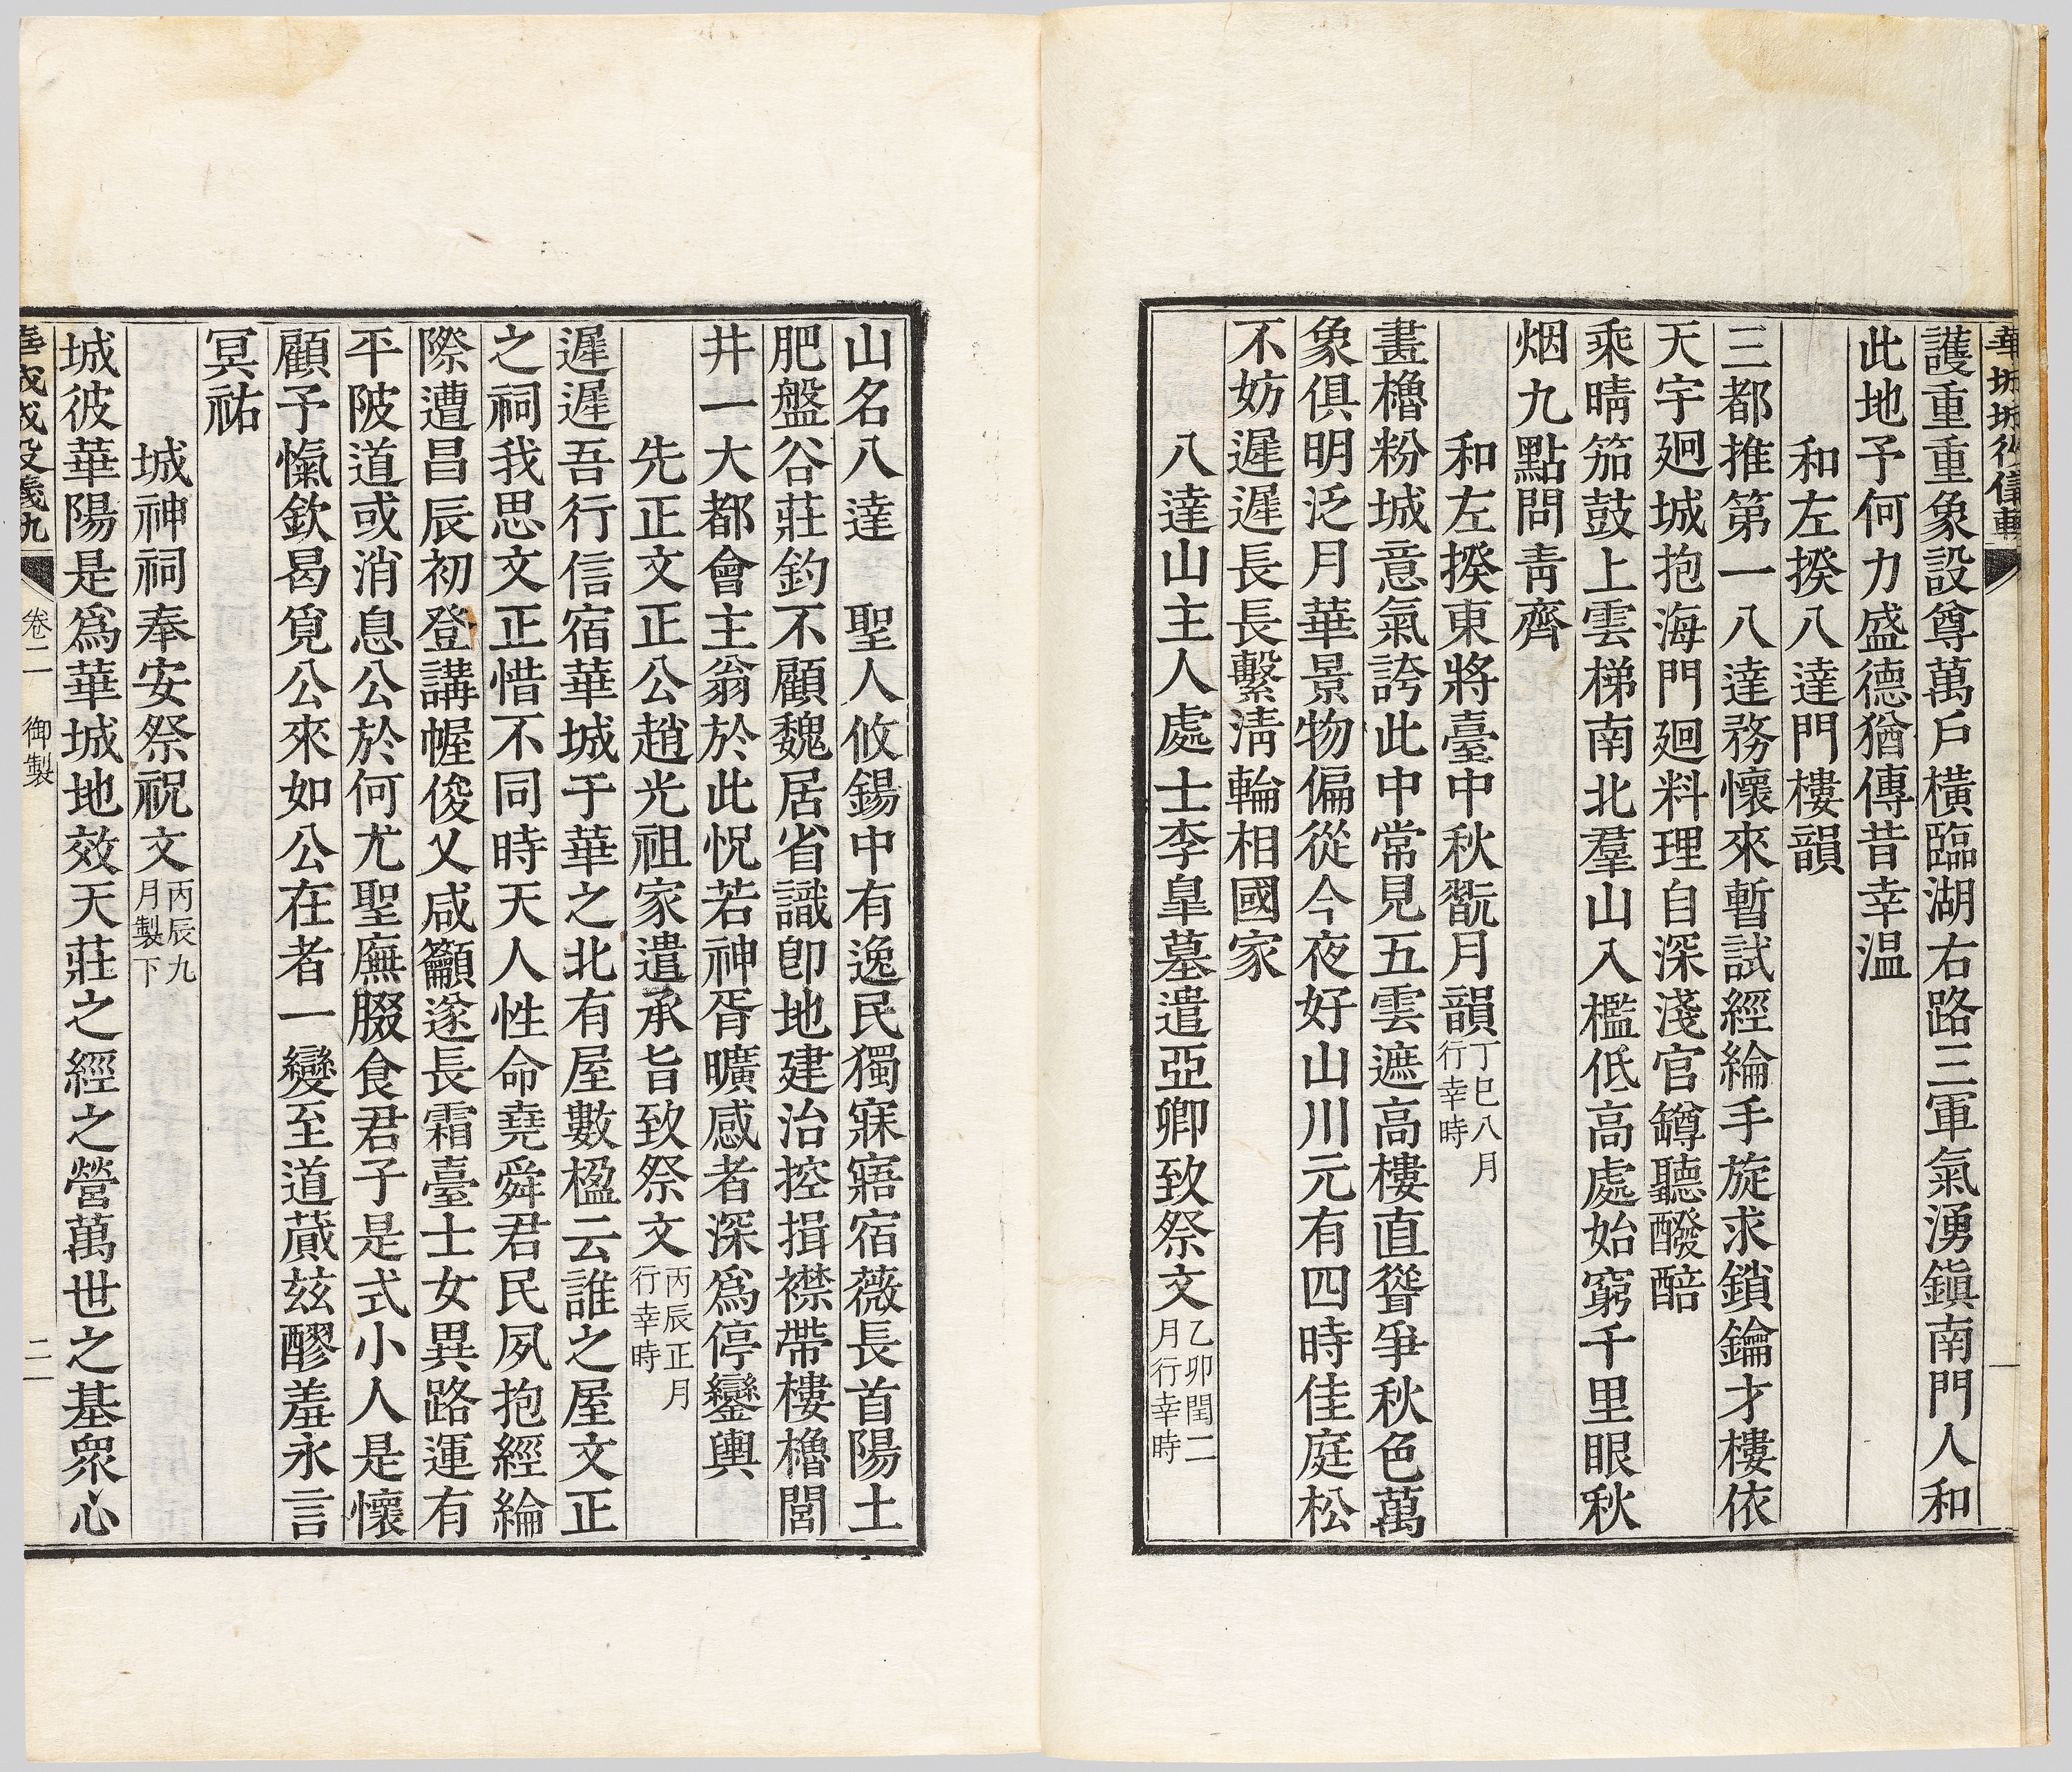 護重重象設尊萬戶橫臨湖右路三軍氣湧鎭南門人和
此地予何力盛德猶傳昔幸温
和左揆八達門樓韻
三都推第一八達務懷來暫試經綸手旋求鎖鑰才樓依
天宇廻城抱海門廻料理自深淺官罇聽醱醅
乘晴笳鼓上雲梯南北羣山入檻低高處始窮千里眼秋
烟九點問靑齊
和左揆東將臺中秋翫月韻丁巳八月行幸時
畫櫓粉城意氣誇此中常見五雲遮高樓直聳爭秋色萬
象俱明泛月華景物偏從今夜好山川元有四時佳庭松
不妨遲遲長長繫淸輪相國家
八達山主人處士李皐墓遣亞卿致祭文乙卯閏二月行幸時
山名八達 聖人攸錫中有逸民獨寐寤宿薇長首陽土
肥盤谷莊釣不顧魏居省識卽地建治控揖襟帶樓櫓閭
井一大都會主翁於此怳若神胥曠感者深爲停鑾輿
先正文正公趙光祖家遣承旨致祭文丙辰正月行幸時
遲遲吾行信宿華城于華之北有屋數楹云誰之屋文正
之祠我思文正惜不同時天人性命堯舜君民夙抱經綸
際遭昌辰初登講幄俊乂咸籲遂長霜臺士女異路運有
平陂道或消息公於何尤聖廡腏食君子是式小人是懷
顧予愾欽曷覓公來如公在者一變至道蕆玆醪羞永言
冥祐
城神祠奉安祭祝文丙辰九月製下
城彼華陽是爲華城地效天莊之經之營萬世之基衆心
卷二 御製 二